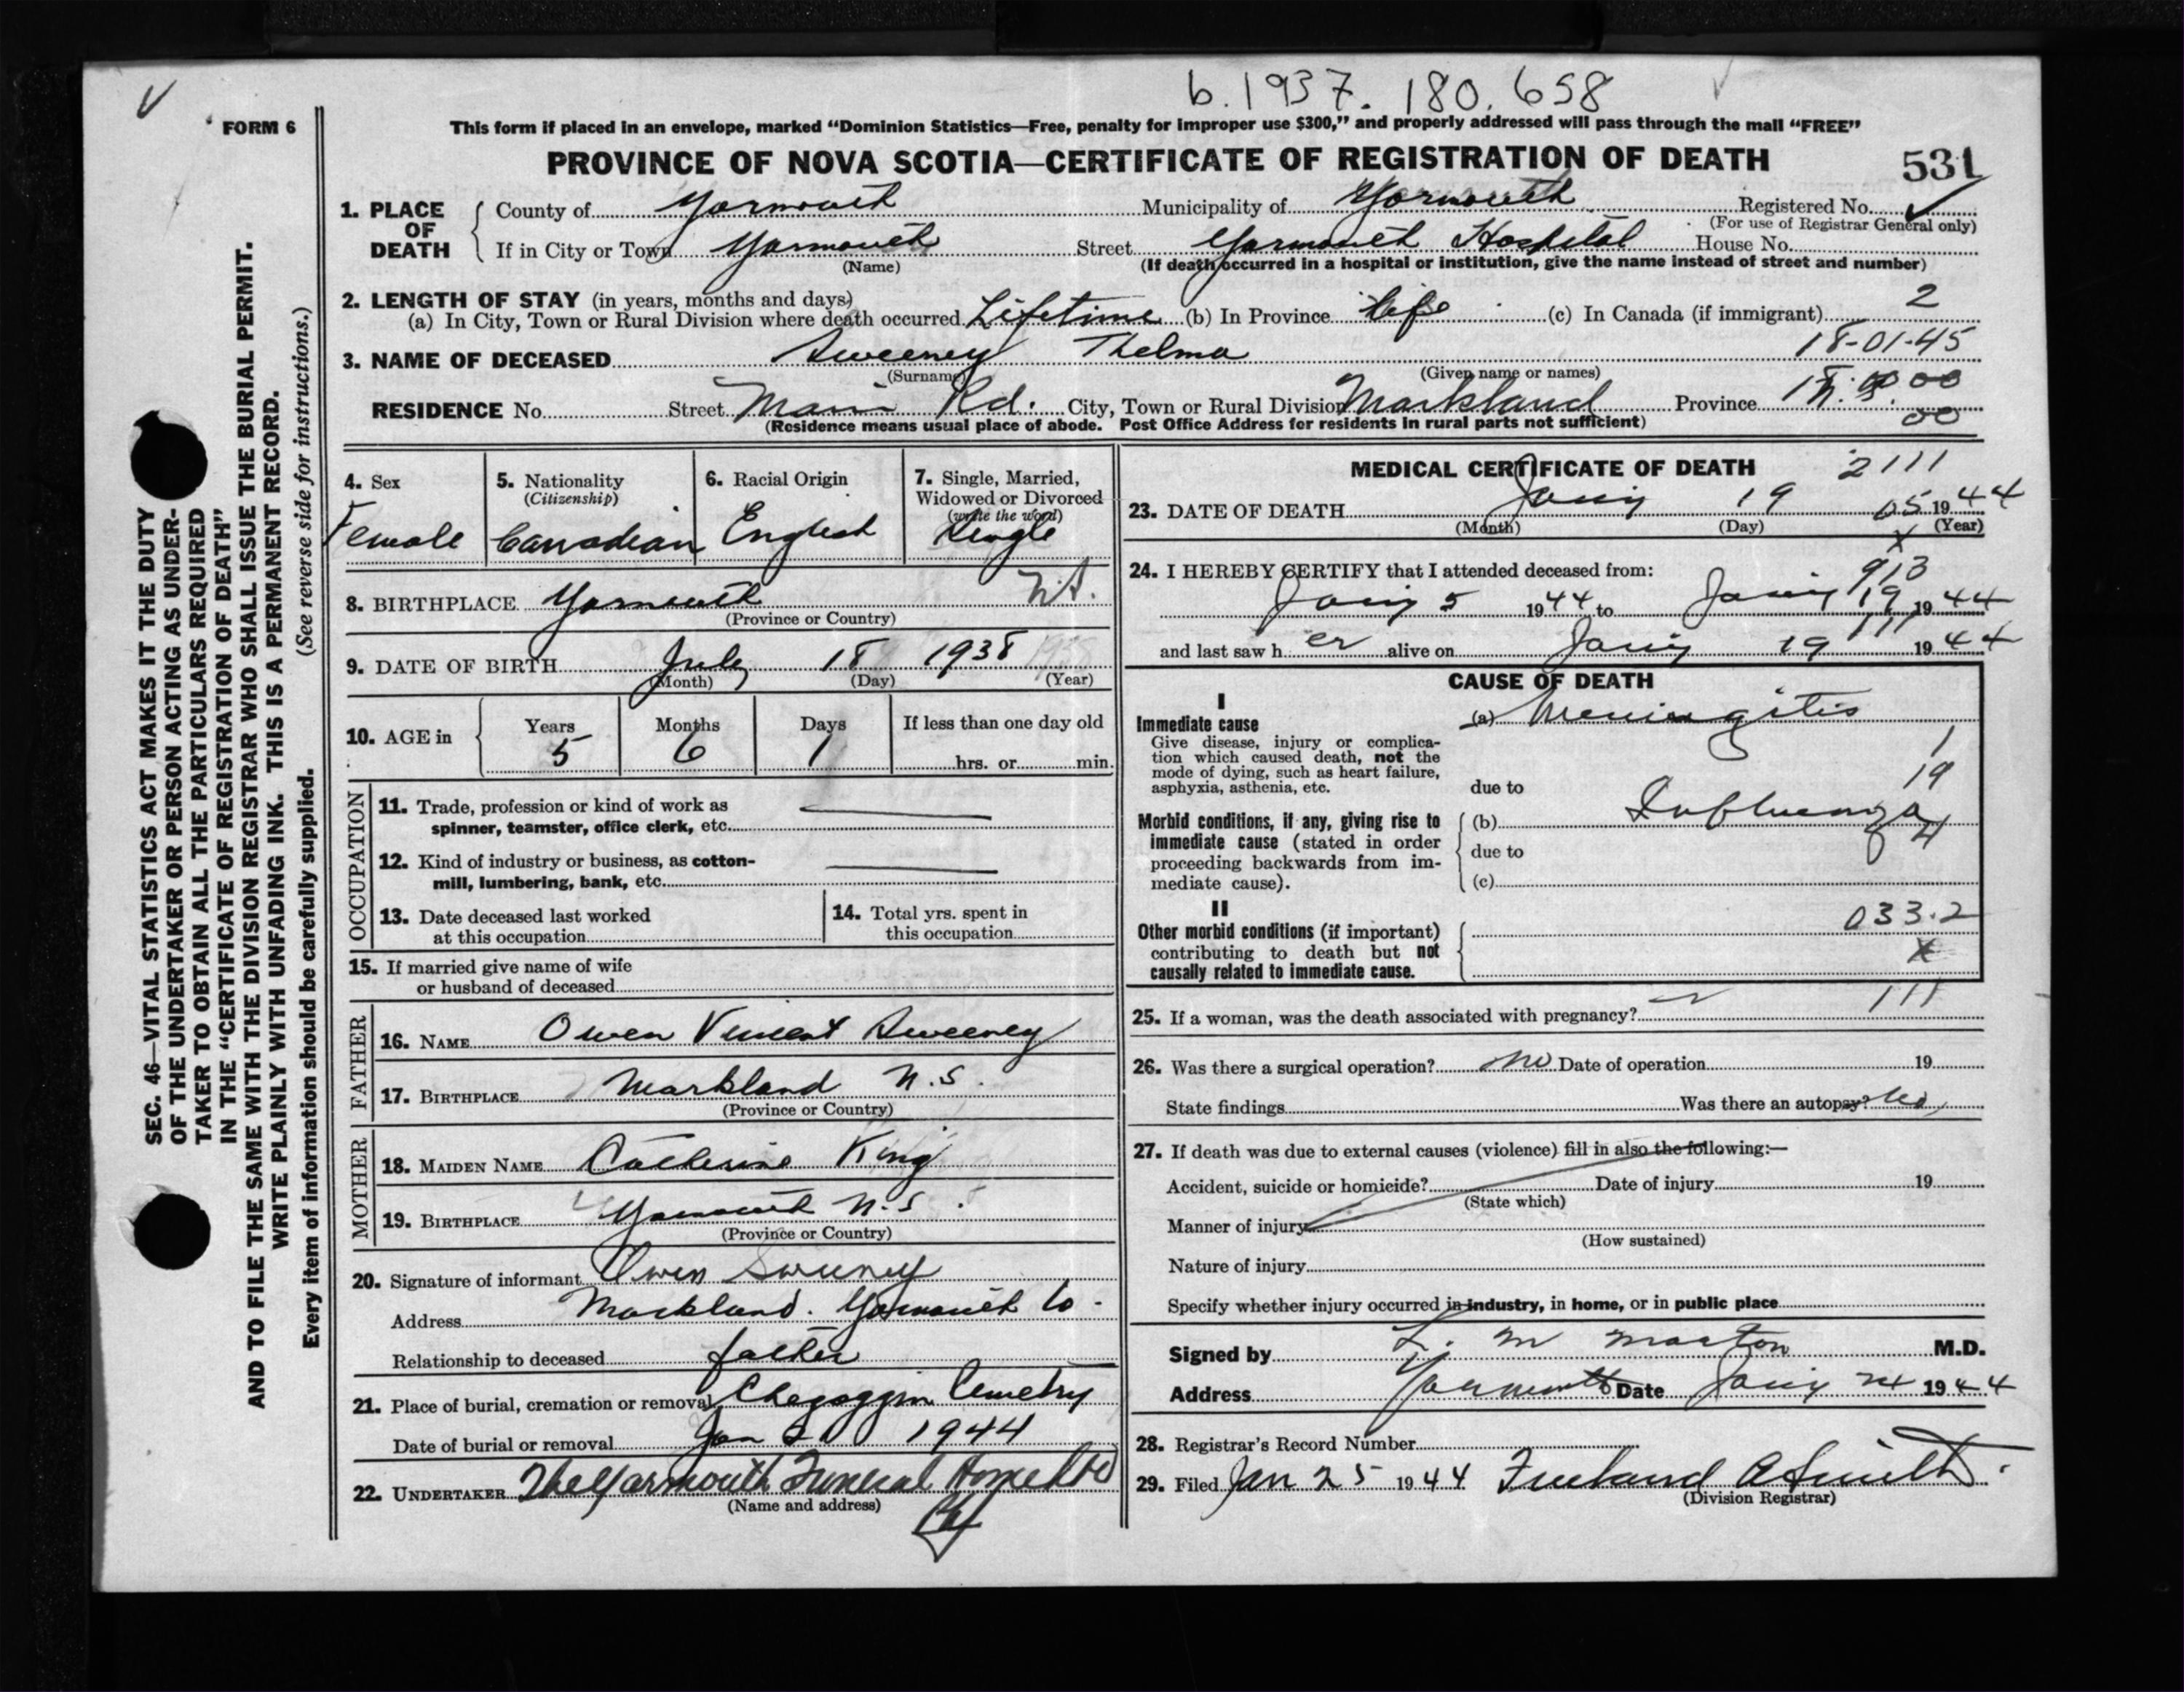 b. 1937. 180. 658
FORM 6
This form if placed in an envelope, marked “Dominion Statistics—Free, penalty for improper use $300,” and properly addressed will pass through the mail “FREE”
PROVINCE OF NOVA SCOTIA—CERTIFICATE OF REGISTRATION OF DEATH 531
1. PLACE OF DEATH
County of Yarmouth Municipality of Yarmouth Registered No.
(For use of Registrar General only)
If in City or Town Yarmouth Street Yarmouth Hospital House No.
(Name) (If death occurred in a hospital or institution, give the name instead of street and number)
2. LENGTH OF STAY (in years, months and days)
(a) In City, Town or Rural Division where death occurred Lifetime (b) In Province life (c) In Canada (if immigrant) 2
3. NAME OF DECEASED Sweeney Thelma 18-01-45
(Surname) (Given name or names)
RESIDENCE No. Street Main Rd. City, Town or Rural Division Markland Province N.S.
00
(Residence means usual place of abode. Post Office Address for residents in rural parts not sufficient)
4. Sex Female
5. Nationality (Citizenship) Canadian
6. Racial Origin English
7. Single, Married, Widowed or Divorced (write the word) Single
8. BIRTHPLACE Yarmouth N.S.
(Province or Country)
9. DATE OF BIRTH July 18 1938 1938
(Month) (Day) (Year)
10. AGE in Years 5 Months 6 Days 1 If less than one day old
hrs. or min.
OCCUPATION
11. Trade, profession or kind of work as
spinner, teamster, office clerk, etc.
12. Kind of industry or business, as cotton-
mill, lumbering, bank, etc.
13. Date deceased last worked
at this occupation
14. Total yrs. spent in
this occupation
15. If married give name of wife
or husband of deceased
FATHER
16. NAME Owen Vincent Sweeney
17. BIRTHPLACE Markland N.S.
(Province or Country)
MOTHER
18. MAIDEN NAME Catherine King
19. BIRTHPLACE Yarmouth N.S.
(Province or Country)
20. Signature of informant Owen Sweeney
Address Markland. Yarmouth Co.
Relationship to deceased father
21. Place of burial, cremation or removal Chegoggin Cemetry
Date of burial or removal Jan 21 1944
22. UNDERTAKER The Yarmouth Funeral Home Ltd
(Name and address)
MEDICAL CERTIFICATE OF DEATH 2111
23. DATE OF DEATH Jany 19 05 1944
(Month) (Day) (Year)
x
24. I HEREBY CERTIFY that I attended deceased from:
913
Jany 5 1944 to Jany 19 1944
111
and last saw her alive on Jany 19 1944
CAUSE OF DEATH
I
Immediate cause (a) Meningitis
Give disease, injury or complica-
tion which caused death, not the
mode of dying, such as heart failure,
asphyxia, asthenia, etc.
1
19
4
due to
Morbid conditions, if any, giving rise to
immediate cause (stated in order
proceeding backwards from im-
mediate cause).
(b) Influenza
due to
(c)
II
Other morbid conditions (if important)
contributing to death but not
causally related to immediate cause.
033.2
x
111
25. If a woman, was the death associated with pregnancy?
26. Was there a surgical operation? no Date of operation 19
State findings Was there an autopsy? No
27. If death was due to external causes (violence) fill in also the following:—
Accident, suicide or homicide? Date of injury 19
(State which)
Manner of injury
(How sustained)
Nature of injury
Specify whether injury occurred in industry, in home, or in public place
Signed by L. M Morton M.D.
Address Yarmouth Date Jany 24 1944
28. Registrar's Record Number
29. Filed Jan 25 1944 Freeland A Smith
(Division Registrar)
SEC. 46—VITAL STATISTICS ACT MAKES IT THE DUTY
OF THE UNDERTAKER OR PERSON ACTING AS UNDER-
TAKER TO OBTAIN ALL THE PARTICULARS REQUIRED
IN THE “CERTIFICATE OF REGISTRATION OF DEATH”
AND TO FILE THE SAME WITH THE DIVISION REGISTRAR WHO SHALL ISSUE THE BURIAL PERMIT.
WRITE PLAINLY WITH UNFADING INK. THIS IS A PERMANENT RECORD.
Every item of information should be carefully supplied. (See reverse side for instructions.)